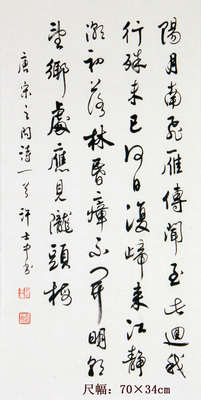 陽月南飛雁傳聞至此迴我
行殊未已何日復歸來江靜
潮初落林昏瘴不開明朝
望鄉處應見隴頭梅
唐宋之問詩一首許士中書
尺幅:70×34cm